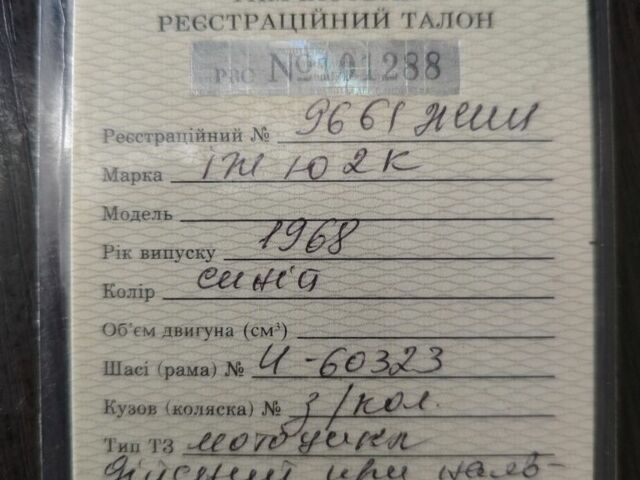 РЕЄСТРАЦІЙНИЙ ТАЛОН
РВС №101288
Реєстраційний № 9661 жши
Марка ІЖ Ю 2 К
Модель
Рік випуску 1968
Колір синій
Об'єм двигуна (см³)
Шасі (рама) № И-60323
Кузов (коляска) № з/кол.
Тип ТЗ мотоцикл
Дійсний при наяв-